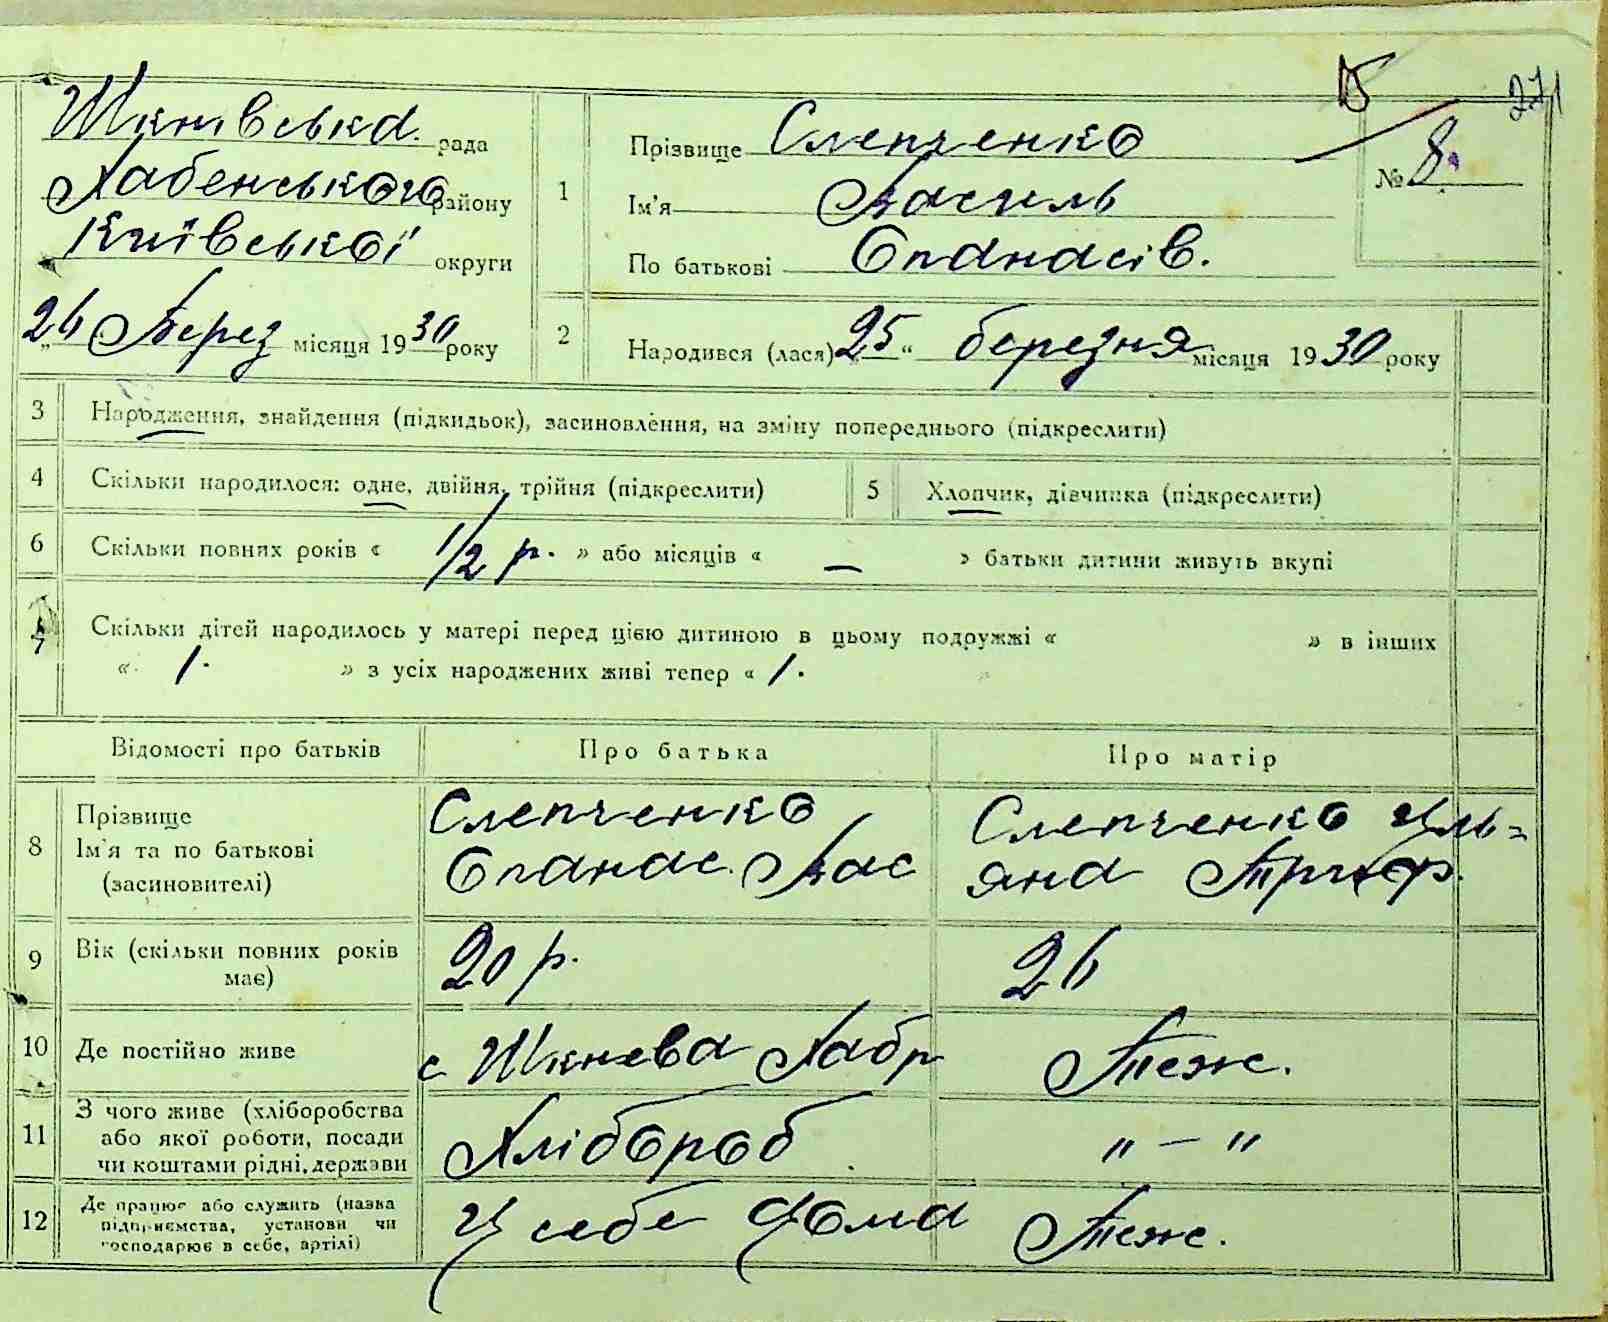 Шкнівська рада
Хабенського району
Київської округи
„26 Берез місяця 1930 року
1
Прізвище Слепченко
Ім'я Василь
По батькові Опанасів.
271
№ 8.
2
Народився (лася) „25“ березня місяця 1930 року
3 Народження, знайдення (підкидьок), засиновлення, на зміну попереднього (підкреслити)
4 Скільки народилося: одне, двійня, трійня (підкреслити)
5 Хлопчик, дівчинка (підкреслити)
6 Скільки повних років « 1/2 р. » або місяців « — » батьки дитини живуть вкупі
7 Скільки дітей народилось у матері перед цією дитиною в цьому подружжі « » в інших
« 1. » з усіх народжених живі тепер « 1.
Відомості про батьків Про батька Про матір
8
Прізвище
Ім'я та по батькові
(засиновителі)
Слепченко
Опанас Вас
Слепченко Уль=
яна
9
Вік (скільки повних років
має)
20 р.
26
10 Де постійно живе
с Шкнева Хабр
Теж.
11
З чого живе (хліборобства
або якої роботи, посади
чи коштами рідні, держави
Хлібороб
„ — „
12
Де працює або служить (назва
підприємства, установи чи
господарює в себе, артілі)
У себе дома
Теж.